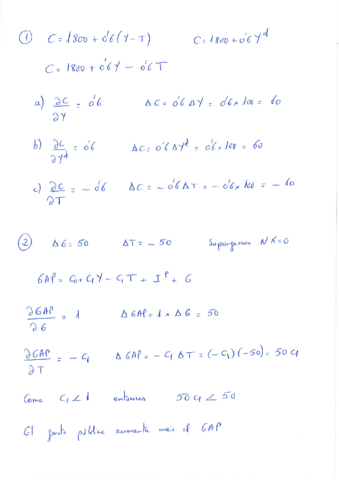 ① C = 1800 + 0'6 (Y-T) C = 1800 + 0'6 Y^d
C = 1800 + 0'6 Y - 0'6 T
a) ∂C/∂Y = 0'6 ΔC = 0'6 ΔY = 0'6 × 100 = 60
b) ∂C/∂Y^d = 0'6 ΔC = 0'6 ΔY^d = 0'6 × 100 = 60
c) ∂C/∂T = - 0'6 ΔC = - 0'6 ΔT = - 0'6 × 100 = - 60
② ΔG = 50 ΔT = - 50 Supongamos NX = 0
GAP = C₀ + C₁Y - C₁T + I^P + G
∂GAP/∂G = 1 ΔGAP = 1 × ΔG = 50
∂GAP/∂T = - C₁ ΔGAP = - C₁ ΔT = (-C₁)(-50) = 50 C₁
Como C₁ < 1 entonces 50 C₁ < 50
El gasto público aumenta más el GAP